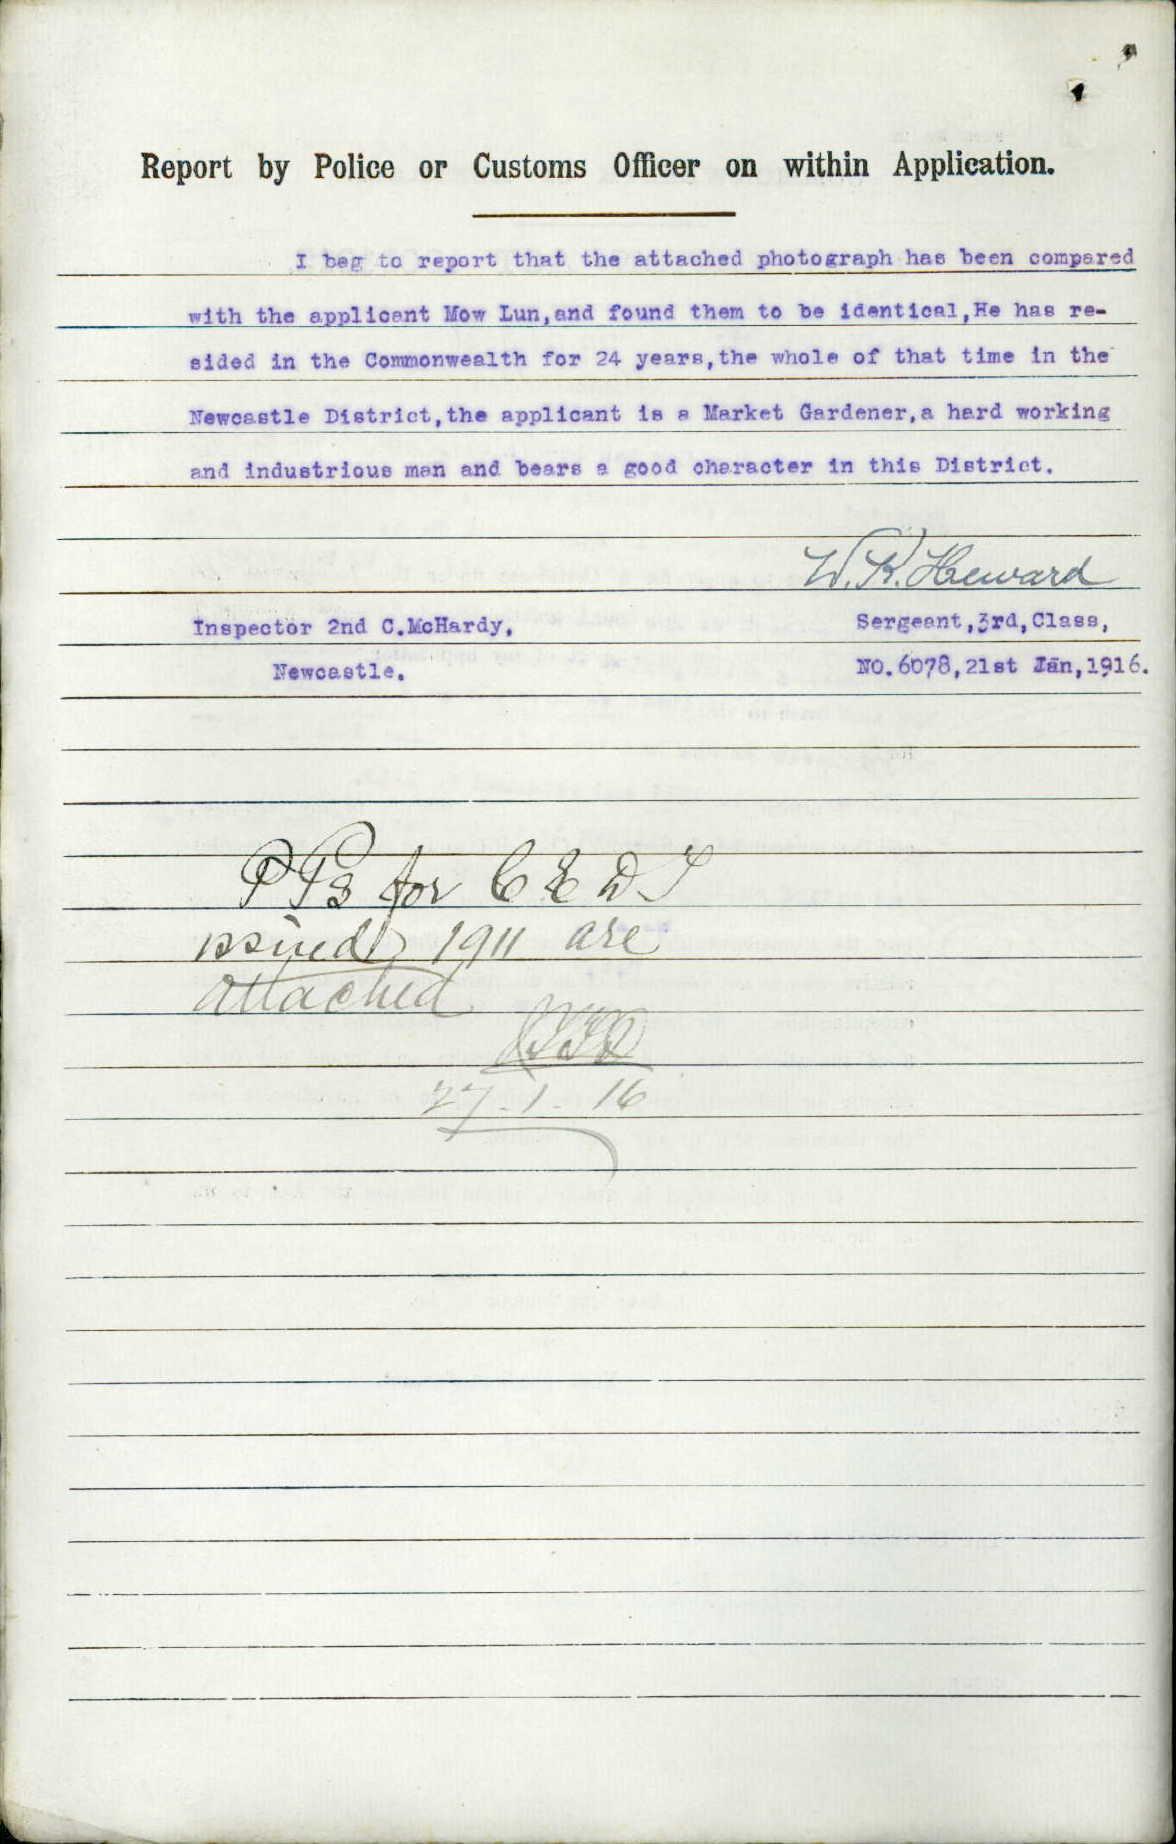 Report by Police or Customs Officer on within Application.
I beg to report that the attached photograph has been compared
with the applicant Mow Lun,and found them to be identical,He has re-
sided in the Commonwealth for 24 years,the whole of that time in the
Newcastle District,the applicant is a Market Gardener,a hard working
and industrious man and bears a good character in this District.
W. K. Heward
Inspector 2nd C.McHardy,
Sergeant,3rd,Class,
Newcastle.
NO.6078,21st Jan,1916.
PPs for C E D T
issued 1911 are
attached
27-1-16